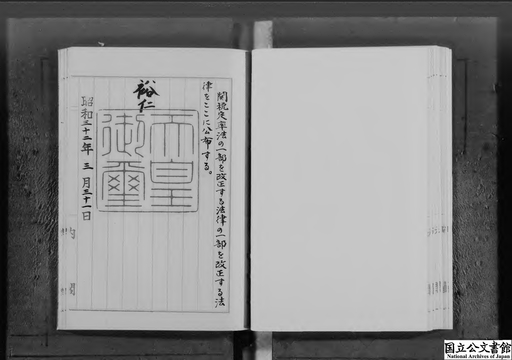 関税定率法の一部を改正する法律の一部を改正する法
律をここに公布する。
裕仁
天皇
御璽
昭和三十二年三月三十一日
国立公文書館
National Archives of Japan